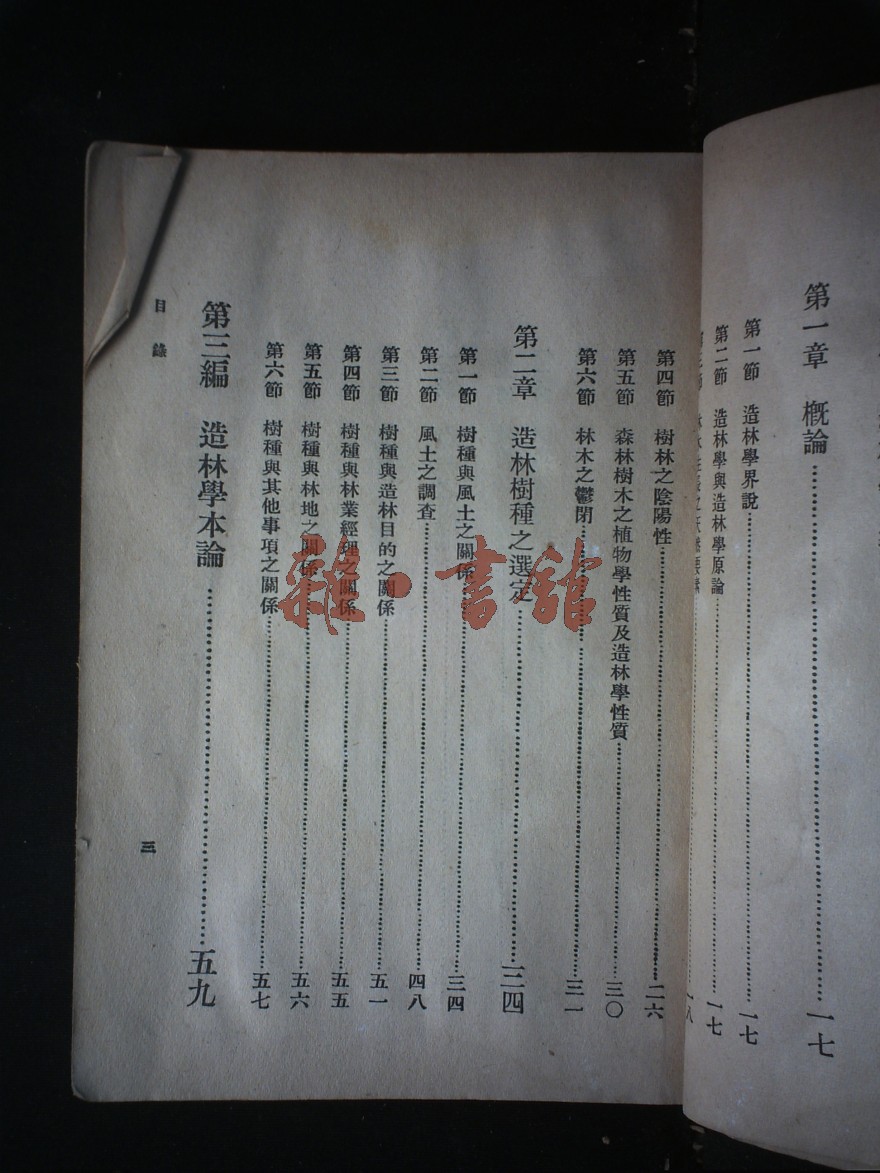 第一章　概論……一七
第一節　造林學界說……一七
第二節　造林學與造林學原論……一七
第四節　樹林之陰陽性……二六
第五節　森林樹木之植物學性質及造林學性質……三〇
第六節　林木之鬱閉……三一
第二章　造林樹種之選定……三四
第一節　樹種與風土之關係……三四
第二節　風土之調查……四八
第三節　樹種與造林目的之關係……五一
第四節　樹種與林業經理之關係……五五
第五節　樹種與林地之關係……五六
第六節　樹種與其他事項之關係……五七
第三編　造林學本論……五九
目錄
三
雜·書館